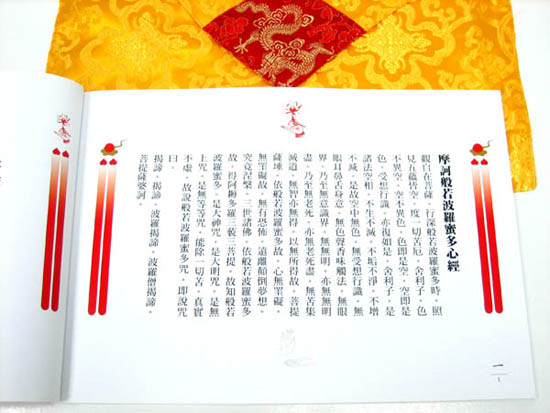 摩訶般若波羅蜜多心經
觀自在菩薩。行深般若波羅蜜多時。照
見五蘊皆空。度一切苦厄。舍利子。色
不異空。空不異色。色即是空。空即是
色。受想行識。亦復如是。舍利子。是
諸法空相。不生不滅。不垢不淨。不增
不減。是故空中無色。無受想行識。無
眼耳鼻舌身意。無色聲香味觸法。無眼
界。乃至無意識界。無無明。亦無無明
盡。乃至無老死。亦無老死盡。無苦集
滅道。無智亦無得。以無所得故。菩提
薩埵。依般若波羅蜜多故。心無罣礙。
無罣礙故。無有恐怖。遠離顛倒夢想。
究竟涅槃。三世諸佛。依般若波羅蜜多
故。得阿耨多羅三藐三菩提。故知般若
波羅蜜多。是大神咒。是大明咒。是無
上咒。是無等等咒。能除一切苦。真實
不虛。故說般若波羅蜜多咒。即說咒
曰。
揭諦。揭諦。波羅揭諦。波羅僧揭諦。
菩提薩婆訶。
一
1